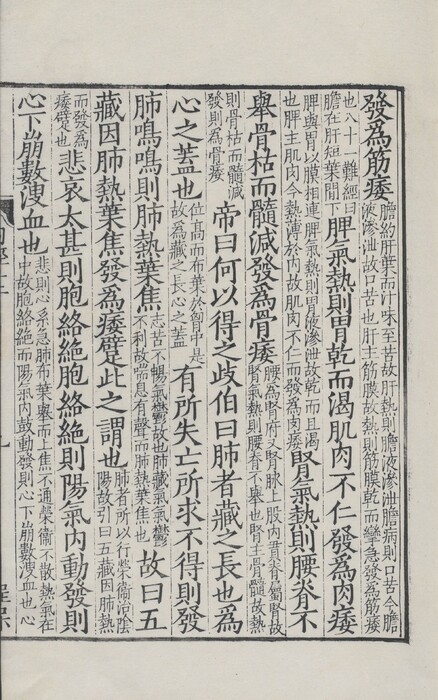 發為筋痿
膽約肝葉而汁味至苦故肝熱則膽液滲泄膽病則口苦今膽
液滲泄故口苦也肝主筋膜故熱則筋膜乾而攣急發為筋痿
也八十一難經曰
膽在肝短葉間下
脾氣熱則胃乾而渴肌肉不仁發為肉痿
脾與胃以膜相連脾氣熱則胃液滲泄故乾而且渴
也脾主肌肉今熱薄於内故肌肉不仁而發為肉痿
腎氣熱則腰脊不
舉骨枯而髓減發為骨痿
腰為腎府又腎脉上股内貫脊屬腎故
腎氣熱則腰脊不舉也腎主骨髓故熱
則骨枯而髓減
發則為骨痿
帝曰何以得之歧伯曰肺者藏之長也為
心之蓋也
位髙而布葉於胷中是
故為藏之長心之蓋
有所失亡所求不得則發
肺鳴鳴則肺熱葉焦
志苦不暢氣鬱故也肺藏氣氣鬱
不利故喘息有聲而肺熱葉焦也
故曰五
藏因肺熱葉焦發為痿躄此之謂也
肺者所以行榮衞治陰
陽故引曰五藏因肺熱
而發為
痿躄也
悲哀太甚則胞絡絶胞絡絶則陽氣内動發則
心下崩數溲血也
悲則心系急肺布葉舉而上焦不通榮衞不散熱氣在
中故胞絡絶而陽氣内鼓動發則心下崩數溲血也心